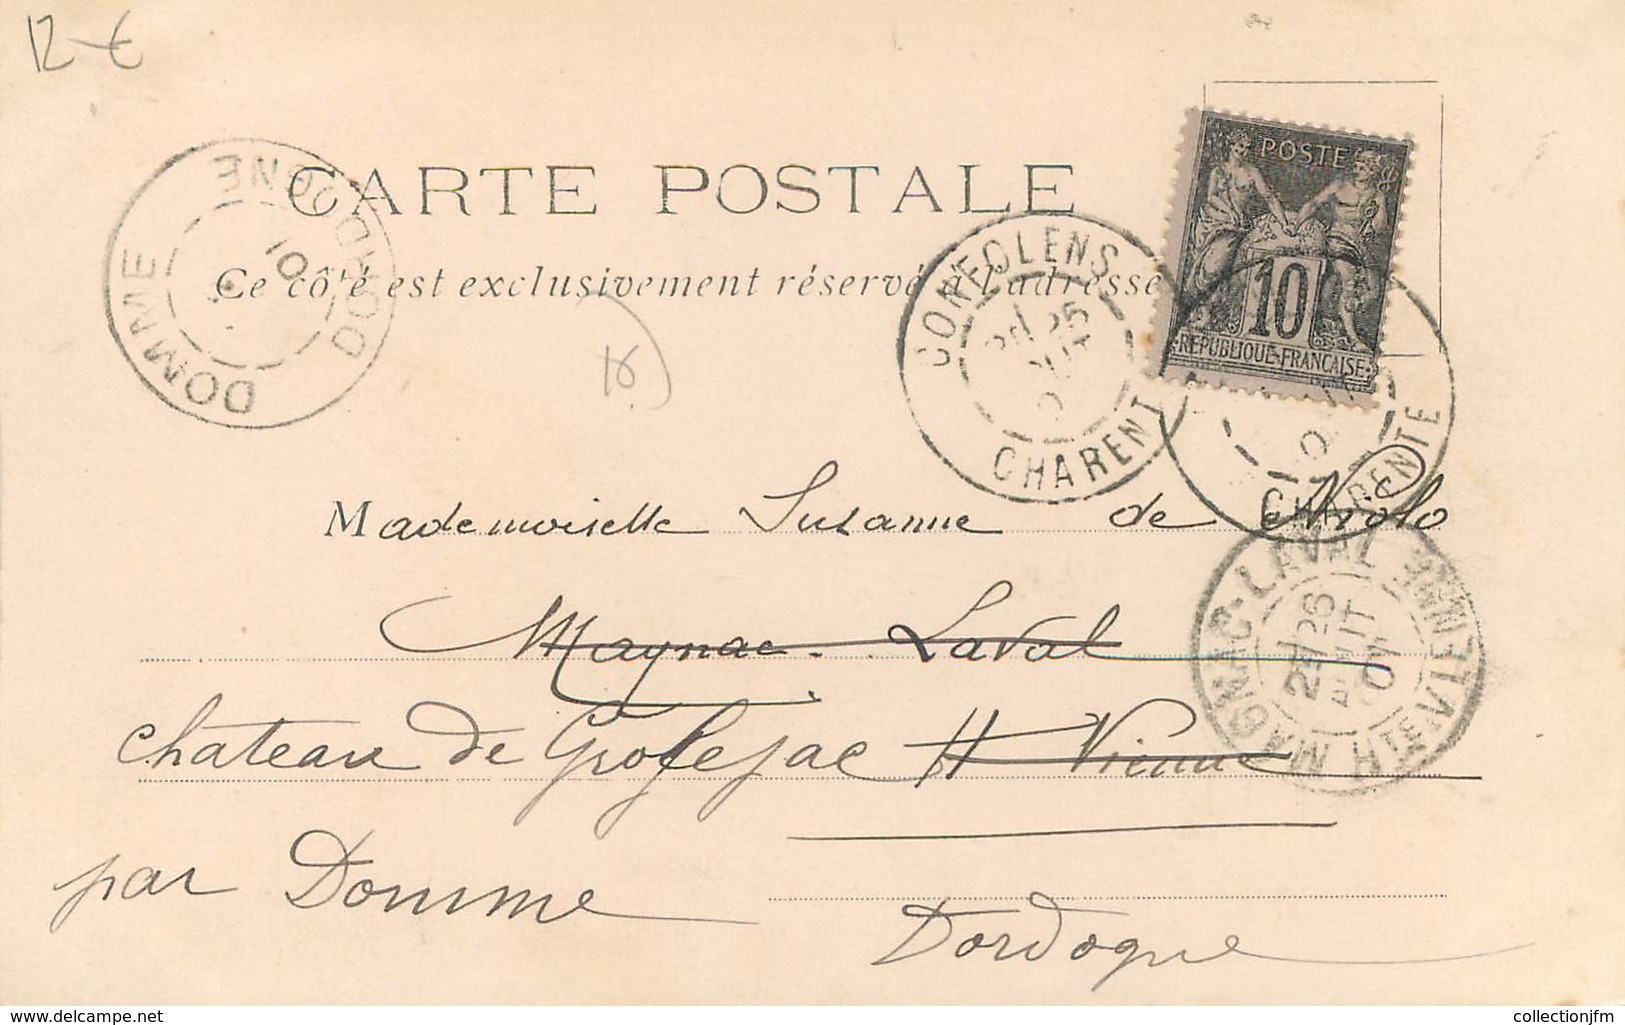 12 €
CARTE POSTALE
Ce côté est exclusivement réservé à l'adresse
POSTES
10
REPUBLIQUE FRANCAISE
DOMME DORDOGNE
01
CONFOLENS
CHARENTE
CHARENTE
MAGNAC-LAVAL
HTE VIENNE
Mademoiselle Suzanne de
Magnac-Laval
chateau de Grolejac Hte Vienne
par Domme
Dordogne
www.delcampe.net
collectionjfm